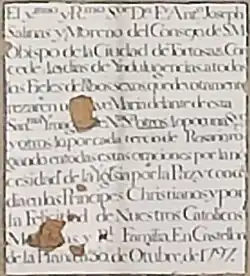 El Yxmo. y Rmo. Sor. Dn. Fr. Anto. Joseph
Salinas y Moreno del Consejo de S.M
Obispo de la Ciudad de Tortosa &. Con
cede 40 dias de Yndulgencias a todos
los Fieles de Ambos sexos que devotamente
rezaren una Ave Maria delante de esta
Santma. de Nra. Sra. otros 40 por una Salve
y otros 40 por cada tercio de Rosario ro
gando en todas estas oraciones por la ne
cesidad de la Iglesia por la Paz y concor
dia en los Principes Christianos y por
la Felicidad de Nuestros Catolicos
y Rl. Familia. En Castellon
de la Plana a 30 de Otubre, de 1797.